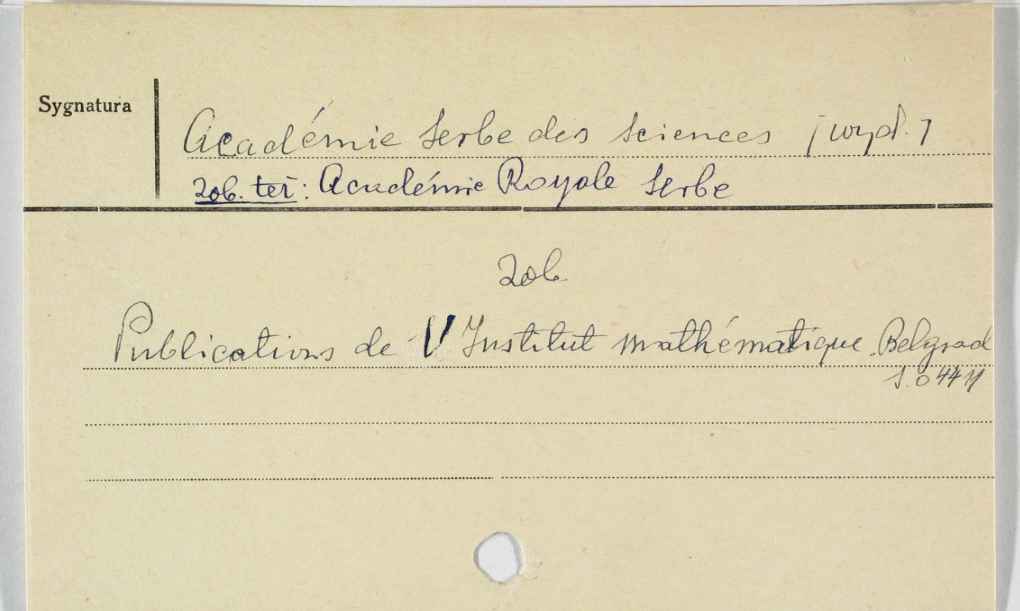 Sygnatura
Académie Serbe des Sciences [wyd.]
Zob. też: Académie Royale Serbe
Zob
Publications de l'Institut mathématique. Belgrad